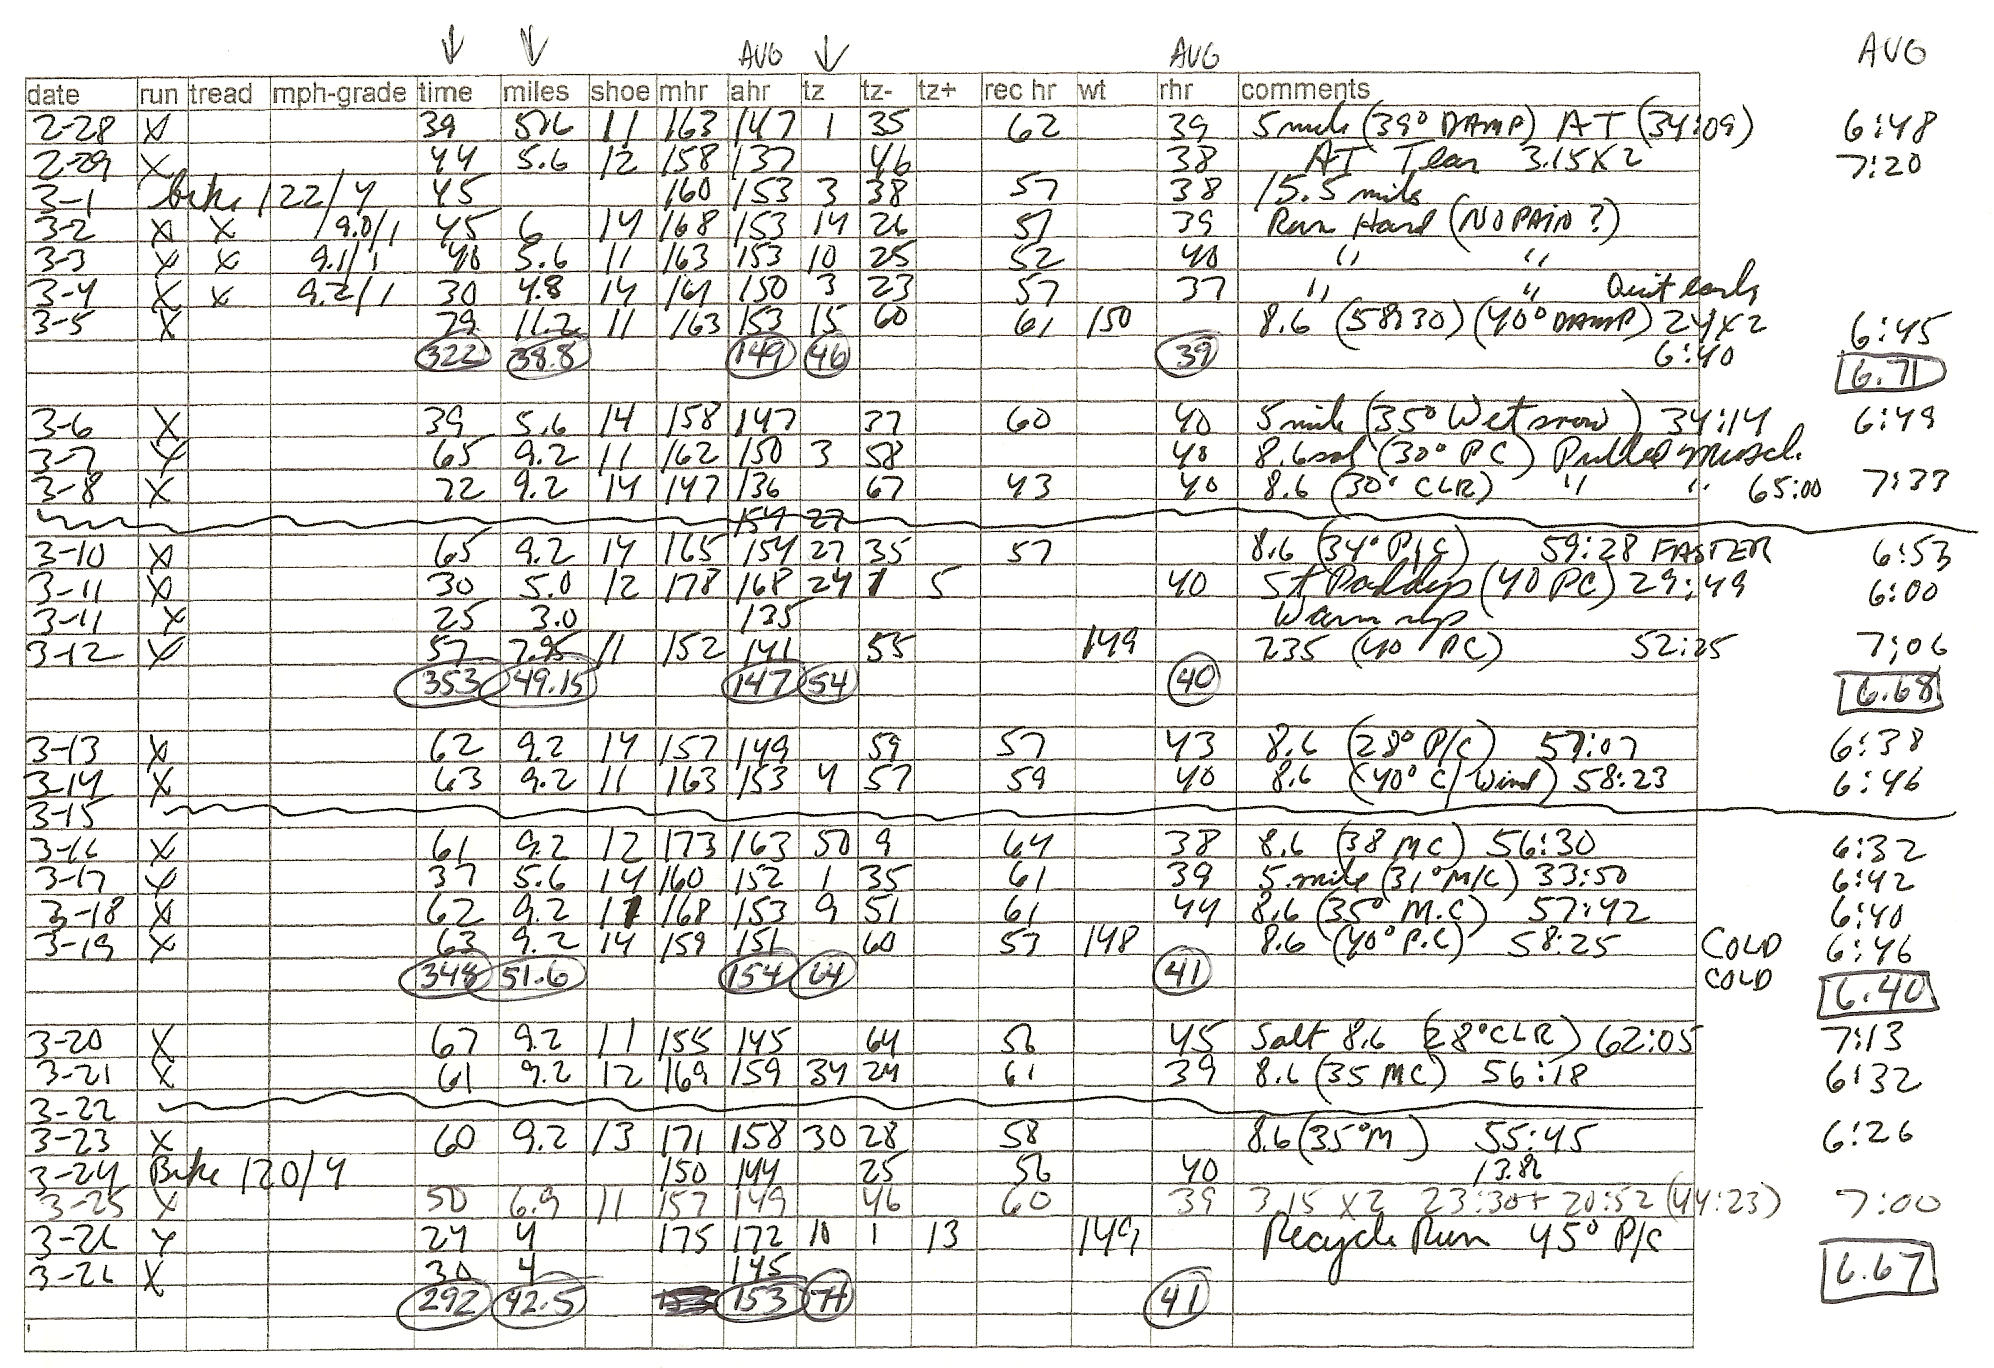 ↓ ↓ AVG ↓ AVG AVG
date run tread mph-grade time miles shoe mhr ahr tz tz- tz+ rec hr wt rhr comments
2-28 X 39 5.6 11 163 147 1 35 62 39 5 mile (39° DAMP) AT (34:09) 6:48
2-29 X 44 5.6 12 158 137 46 38 AT 3.15X2 7:20
3-1 bike 122/4 45 160 153 3 38 57 38 15.5 mile
3-2 X X 9.0/1 45 6 14 168 153 14 26 57 39 Ran Hard (NO PAIN?)
3-3 X X 9.1/1 40 5.6 11 163 153 10 25 52 40 " "
3-4 X X 9.2/1 30 4.8 14 161 150 3 23 57 37 " " Quit early
3-5 X 79 11.2 11 163 153 15 60 61 150 8.6 (58:30) (40° DAMP) 24X2 6:45
322 38.8 149 46 39 6:40 6.71
3-6 X 39 5.6 14 158 147 37 60 40 5 mile (35° Wet snow) 34:14 6:49
3-7 X 65 9.2 11 162 150 3 58 40 8.6 (30° PC) Pulled Muscle
3-8 X 72 9.2 14 147 136 67 43 40 8.6 (30° CLR) " " 65:00 7:33
154 27
3-10 X 65 9.2 14 165 154 27 35 57 8.6 (34° P/C) 59:28 FASTER 6:53
3-11 X 30 5.0 12 178 168 24 1 5 40 St Paddys (40 PC) 29:49 6:00
3-11 X 25 3.0 135 Warm up
3-12 X 57 7.95 11 152 141 55 149 235 (40 PC) 52:25 7:06
353 49.15 147 54 40 6.68
3-13 X 62 9.2 14 157 149 59 57 43 8.6 (28° P/C) 57:07 6:38
3-14 X 63 9.2 11 163 153 4 57 59 40 8.6 (40° C/Wind) 58:23 6:46
3-15
3-16 X 61 9.2 12 173 163 50 9 64 38 8.6 (38 MC) 56:30 6:32
3-17 X 37 5.6 14 160 152 1 35 61 39 5 mile (31° M/C) 33:50 6:42
3-18 X 62 9.2 11 168 153 9 51 61 44 8.6 (35° M.C) 57:42 6:40
3-19 X 63 9.2 14 159 151 60 57 148 8.6 (40° P.C) 58:25 COLD 6:46
348 51.6 154 64 41 COLD 6.40
3-20 X 67 9.2 11 155 145 64 56 45 Salt 8.6 (28° CLR) 62:05 7:13
3-21 X 61 9.2 12 169 159 34 24 61 39 8.6 (35 MC) 56:18 6:32
3-22
3-23 X 60 9.2 13 171 158 30 28 58 8.6 (35° M) 55:45 6:26
3-24 Bike 120/4 150 144 25 56 40 13.82
3-25 X 50 6.9 11 157 149 46 60 39 3.15 X2 23:30+ 20:52 (44:23) 7:00
3-26 X 24 4 175 172 10 1 13 149 Recycle Run 45° P/C
3-26 X 30 4 145 6.67
292 42.5 153 74 41